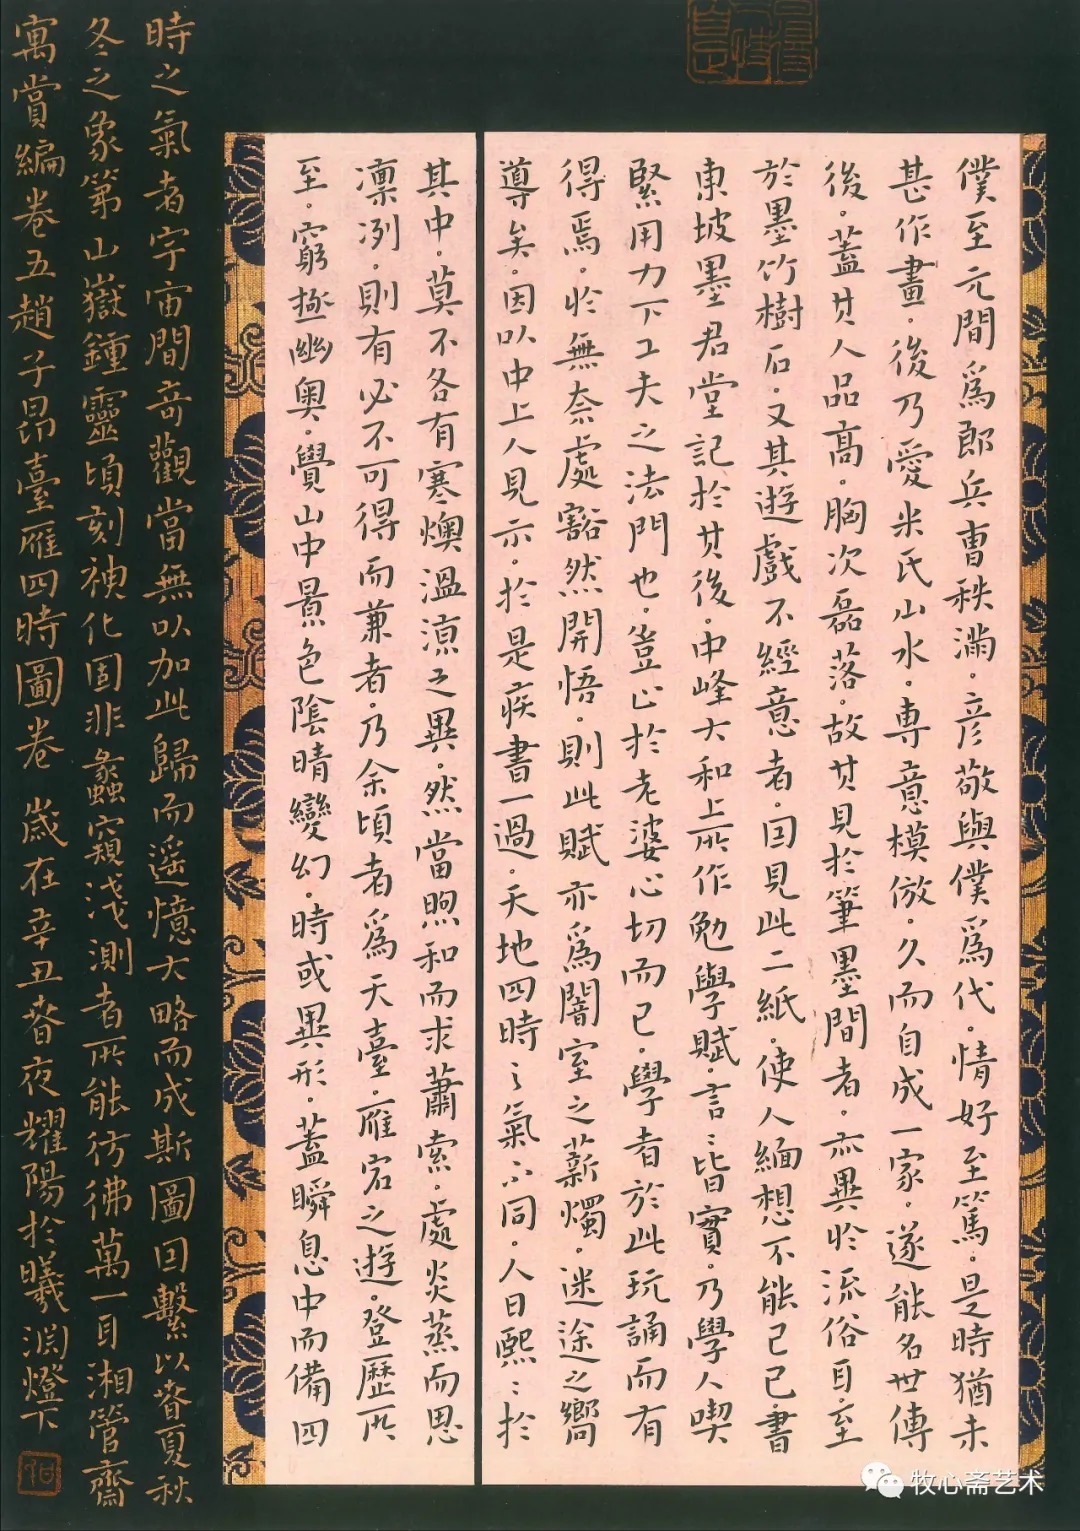 僕至元間爲郎兵曹秩滿。彦敬與僕爲代。情好至篤。是時猶未
甚作畫。後乃愛米氏山水。専意模倣。久而自成一家。遂能名世傳
後。蓋其人品高。胸次磊落。故其見於筆墨間者。亦異於流俗耳。至
於墨竹樹石。又其遊戲不經意者。因見此二紙。使人緬想不能已已。書
東坡墨君堂記於其後。中峰大和上所作勉學賦。言言皆實。乃學人喫
緊用力下工夫之法門也。豈止於老婆心切而已。學者於此玩誦而有
得焉。於無奈處豁然開悟。則此賦亦爲闇室之薪燭。迷途之嚮
導矣。因以中上人見示。於是疾書一過。天地四時之氣不同。人日熙熙於
其中。莫不各有寒燠溫涼之異。然當煦和而求蕭索。處炎蒸而思
凛冽。則有必不可得而兼者。乃余頃者爲天臺。雁宕之遊。登歷所
至。窮極幽奥。覺山中景色陰晴變幻。時或異形。蓋瞬息中而備四
時之氣者宇宙間奇觀當無以加此歸而遥憶大略而成斯圖因繫以春夏秋
冬之象第山嶽鍾靈頃刻神化固非蠡窺淺測者所能彷彿萬一耳湘管齋
寓賞編卷五趙子昂臺雁四時圖卷 歲在辛丑春夜耀陽於曦淵燈下
牧心斋艺术